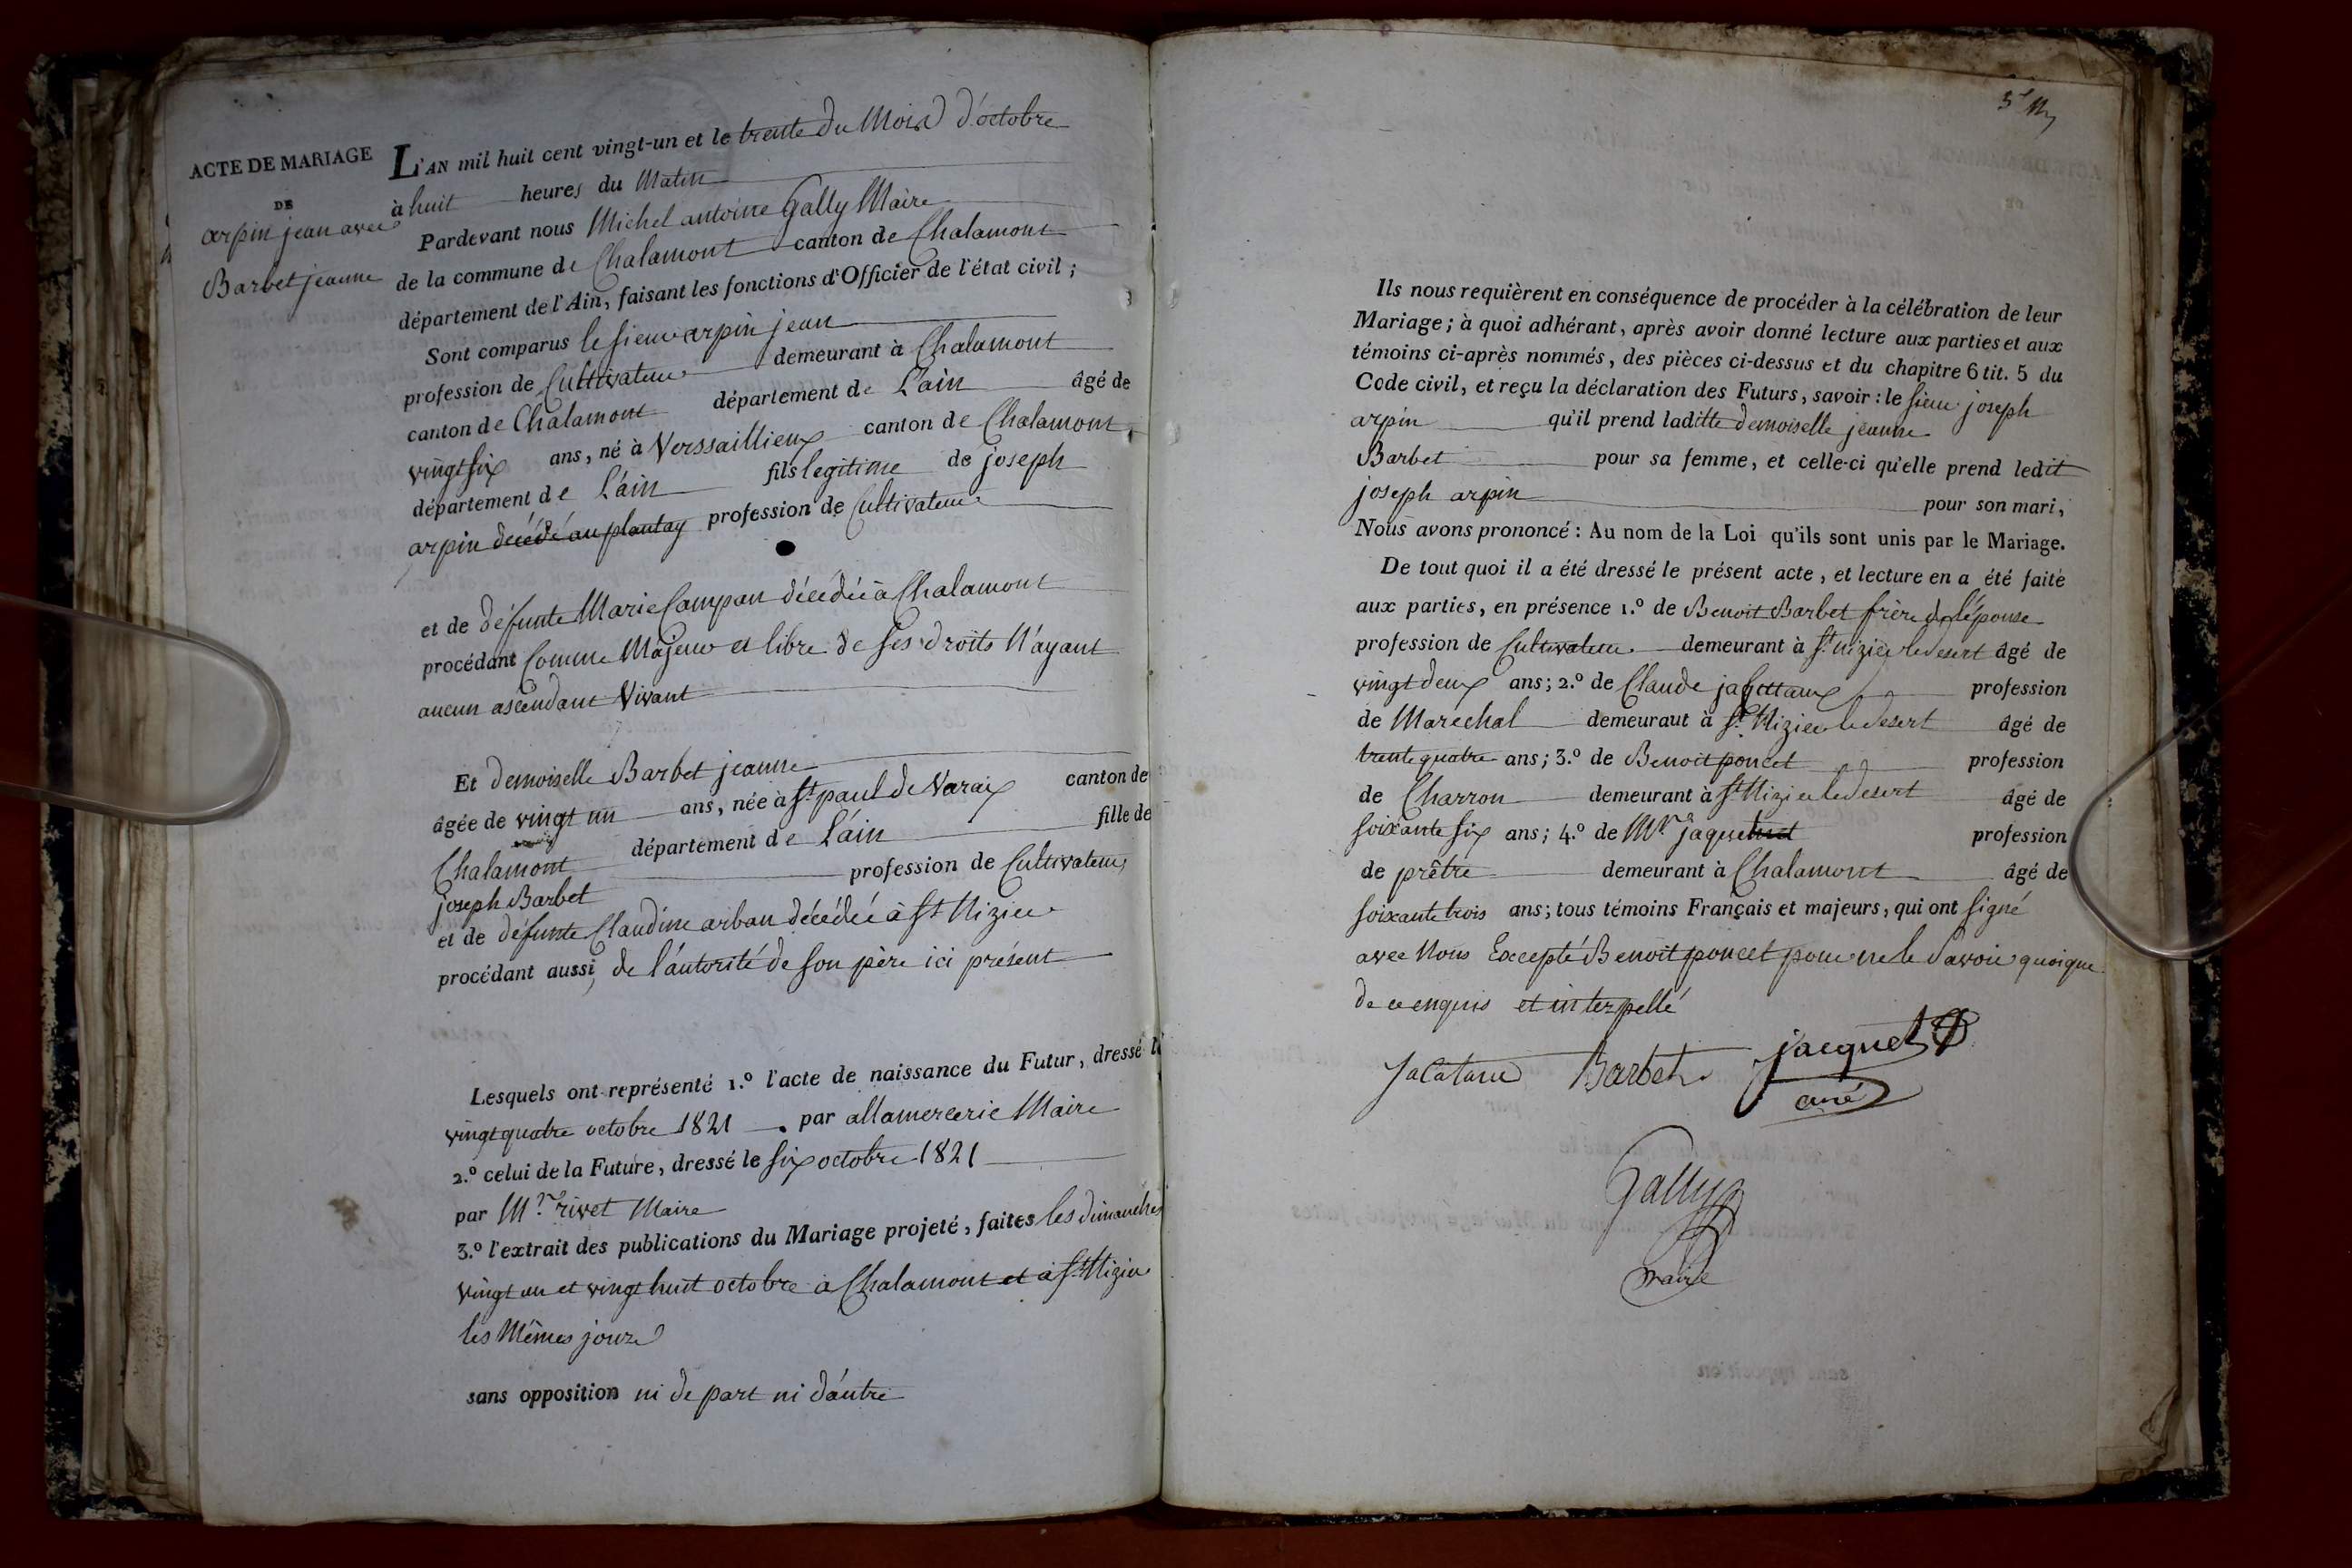 ACTE DE MARIAGE
DE
arpin jean avec
Barbet jeanne
L'AN mil huit cent vingt-un et le trente du Mois d'octobre
à huit heures du Matin
Pardevant nous Michel antoine Gally Maire
de la commune de Chalamont canton de Chalamont
département de l'Ain, faisant les fonctions d'Officier de l'état civil ;
Sont comparus le sieur arpin jean
profession de Cultivateur demeurant à Chalamont
canton de Chalamont département de L'ain âgé de
vingt six ans, né à Verssaillieux canton de Chalamont
département de L'ain fils legitime de joseph
arpin décédé au plantay profession de Cultivateur
et de défunte Marie Campan décédée à Chalamont
procédant Comme Majeur et libre de ses droits N'ayant
aucun ascendant Vivant
Et demoiselle Barbet jeanne
âgée de vingt un ans, née à St. paul de Varaix canton de
Chalamont département de L'ain fille de
joseph Barbet profession de Cultivateur
et de défunte Claudine arban décédée à St Nizier
procédant aussi, de l'autorité de son père ici présent
Lesquels ont représenté 1.º l'acte de naissance du Futur, dressé le
vingt quatre octobre 1821 par allamercerie Maire
2.º celui de la Future, dressé le six octobre 1821
par Mr. rivet Maire
3.º l'extrait des publications du Mariage projeté, faites les dimanches
vingt un et vingt huit octobre à Chalamont et à St Nizier
les Mêmes jours
sans opposition ni de part ni d'autre
Ils nous requièrent en conséquence de procéder à la célébration de leur
Mariage ; à quoi adhérant, après avoir donné lecture aux parties et aux
témoins ci-après nommés, des pièces ci-dessus et du chapitre 6 tit. 5 du
Code civil, et reçu la déclaration des Futurs, savoir : le sieur joseph
arpin qu'il prend laditte demoiselle jeanne
Barbet pour sa femme, et celle-ci qu'elle prend ledit
joseph arpin pour son mari,
Nous avons prononcé : Au nom de la Loi qu'ils sont unis par le Mariage.
De tout quoi il a été dressé le présent acte, et lecture en a été faite
aux parties, en présence 1.º de Benoit Barbet frère de l'épouse
profession de Cultivateur demeurant à St. nizier le desert âgé de
vingt deux ans ; 2.º de Claude profession
de Marechal demeuraut à St. Nizier le desert âgé de
trente quatre ans ; 3.º de Benoit poncet profession
de Charron demeurant à St Nizier le desert âgé de
soixante six ans ; 4.º de Mr. profession
de prêtre demeurant à Chalamont âgé de
soixante trois ans ; tous témoins Français et majeurs, qui ont signé
avec Nous Excepté Benoit poncet pour ne le savoir quoique
de ce enquis et interpellé
Barbet jacquet
curé
Gally
maire